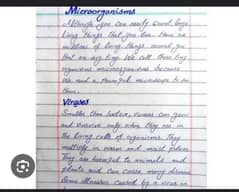 Microorganisms
Although you can easily
living things that you
millions of living things around you
that are very tiny. We call these tiny
organisms microorganisms because
we need a powerful microscope to see
them.
Viruses
Smaller than bacteria, viruses can grow
and survive only when they are in
the living cells of organisms. They
multiply in and
They are harmful to animals and
plants and can cause many diseases
Some diseases caused by a virus are